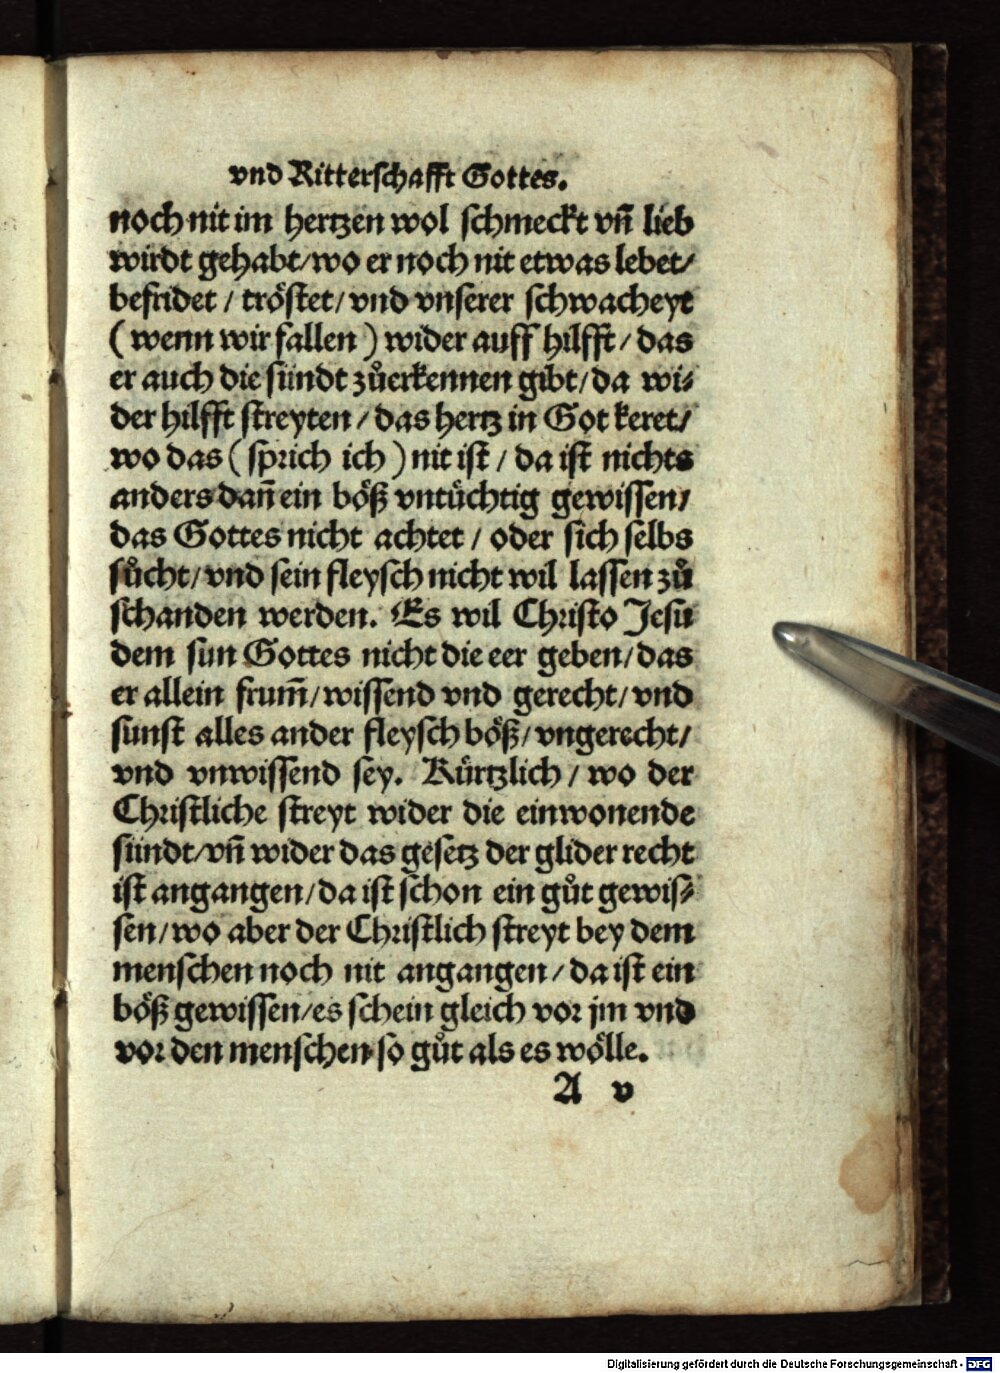 vnd Ritterſchafft Gottes.
noch nit im hertzen wol ſchmeckt vñ lieb
wirdt gehabt/wo er noch nit etwas lebet/
befridet / tröſtet/ vnd vnſerer ſchwacheyt
( wenn wir fallen ) wider auff hilfft / das
er auch die ſündt zůerkennen gibt/ da wi⸗
der hilfft ſtreyten / das hertz in Got keret/
wo das ( ſprich ich ) nit iſt / da iſt nichts
anders dañ ein böß vntüchtig gewiſſen/
das Gottes nicht achtet / oder ſich ſelbs
ſůcht/ vnd ſein fleyſch nicht wil laſſen zů
ſchanden werden. Es wil Chriſto Jeſu
dem ſun Gottes nicht die eer geben/ das
er allein frum̃/ wiſſend vnd gerecht/ vnd
ſunſt alles ander fleyſch böß/ vngerecht/
vnd vnwiſſend ſey. Kürtzlich / wo der
Chriſtliche ſtreyt wider die einwonende
ſündt/vñ wider das geſetz der glider recht
iſt angangen/ da iſt ſchon ein gůt gewiſ⸗
ſen/ wo aber der Chriſtlich ſtreyt bey dem
menſchen noch nit angangen/ da iſt ein
böß gewiſſen/es ſchein gleich vor jm vnd
vor den menſchen ſo gůt als es wölle.
A v
Digitalisierung gefördert durch die Deutsche Forschungsgemeinschaft - DFG